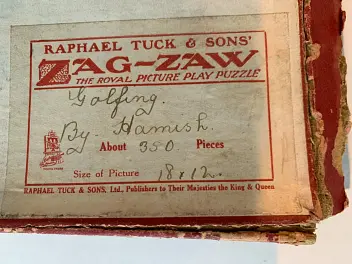 RAPHAEL TUCK & SONS'
ZAG-ZAW
THE ROYAL PICTURE PLAY PUZZLE
Golfing.
By. Hamish.
About 350 Pieces
Size of Picture 18 x 12.
RAPHAEL TUCK & SONS, Ltd., Publishers to Their Majesties the King & Queen